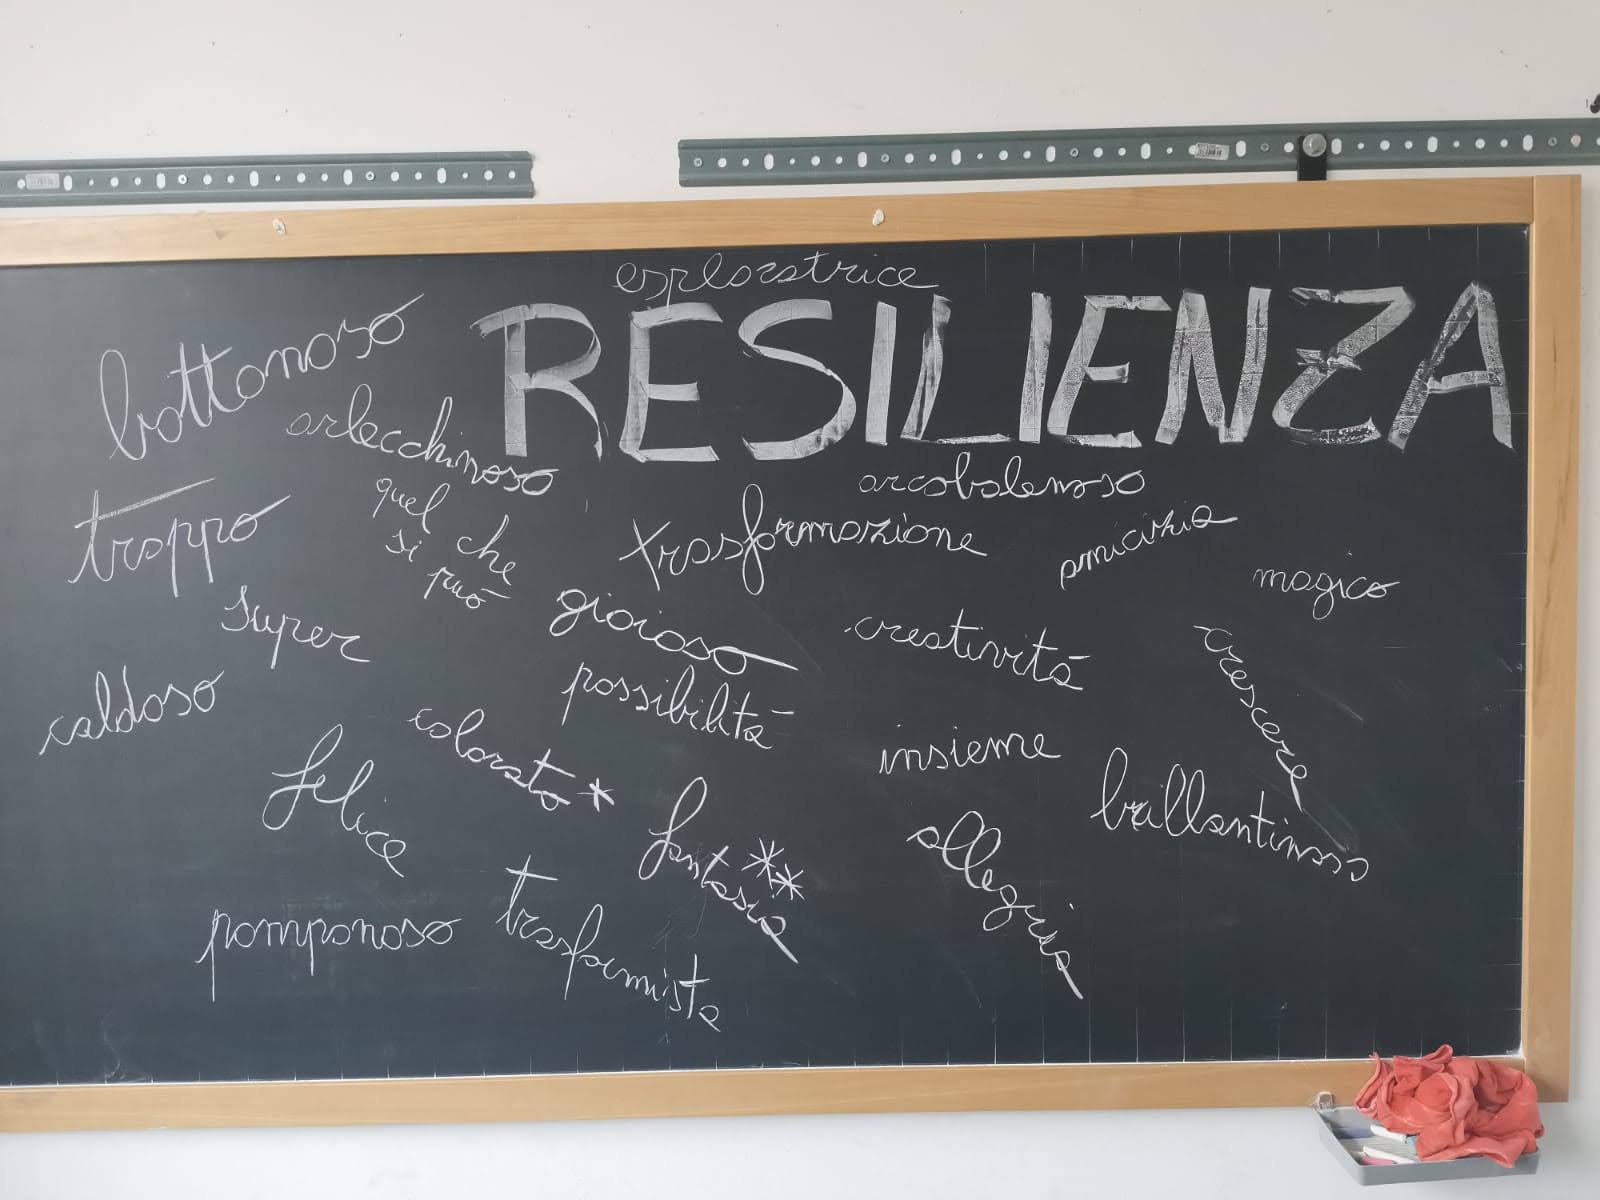 esploratrice
RESILIENZA
bottonoso
arlecchinoso
arcobalenoso
troppo
quel che
si può
trasformazione
amicizia
magico
super
gioioso
creatività
crescere
caldoso
possibilità
colorato *
insieme
felice
fantasia **
allegria
brillantinoso
pomponoso
trasformista